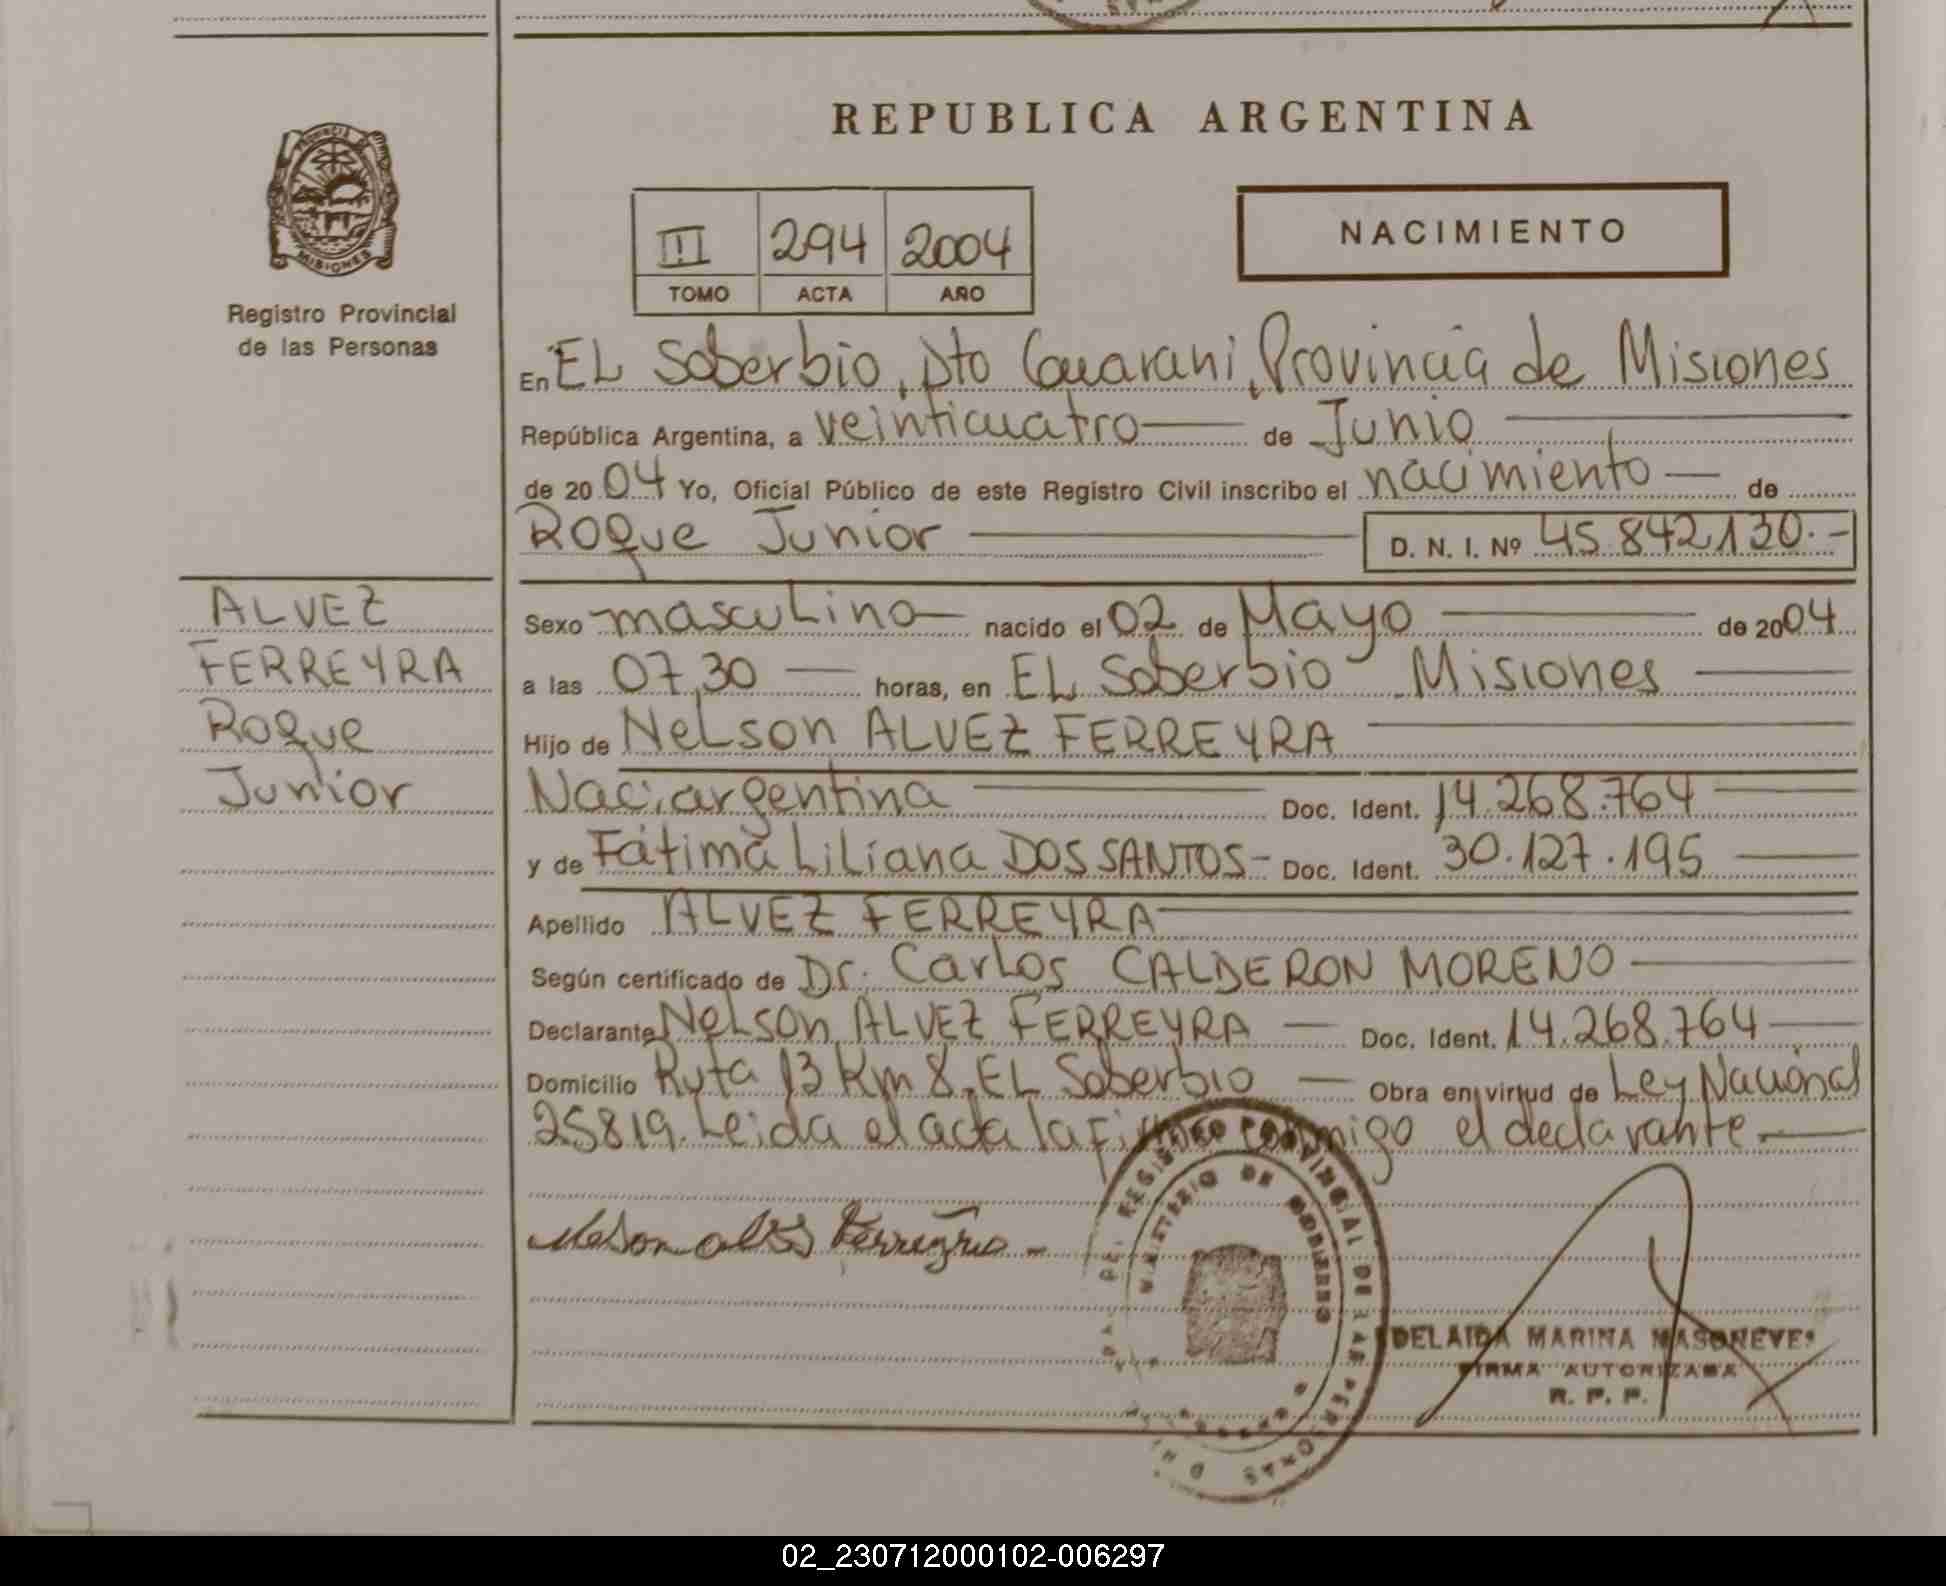 REPUBLICA ARGENTINA
PROVINCIA DE
MISIONES
Registro Provincial
de las Personas
III 294 2004
TOMO ACTA AÑO
NACIMIENTO
En EL Soberbio, Dto Guarani, Provincia de Misiones
República Argentina, a veinticuatro de Junio
de 2004 Yo, Oficial Público de este Registro Civil inscribo el nacimiento de
Roque Junior D. N. I. Nº 45.842.130.-
ALVEZ
FERREYRA
Roque
Junior
Sexo masculino nacido el 02 de Mayo de 2004
a las 07,30 horas, en EL Soberbio Misiones
Hijo de Nelson ALVEZ FERREYRA
Nac. argentina Doc. Ident. 14.268.764
y de Fátima Liliana DOS SANTOS - Doc. Ident. 30.127.195
Apellido ALVEZ FERREYRA
Según certificado de Dr. Carlos CALDERON MORENO
Declarante Nelson ALVEZ FERREYRA Doc. Ident. 14.268.764
Domicilio Ruta 13 Km 8, EL Soberbio Obra en virtud de Ley Nacional
25819. Leida el acta la firma conmigo el declarante
Nelson alves Ferreyra -
REGISTRO PROVINCIAL DE LAS PERSONAS
MINISTERIO DE GOBIERNO
MARINA
FIRMA AUTORIZADA
R. P. P.
02_230712000102-006297